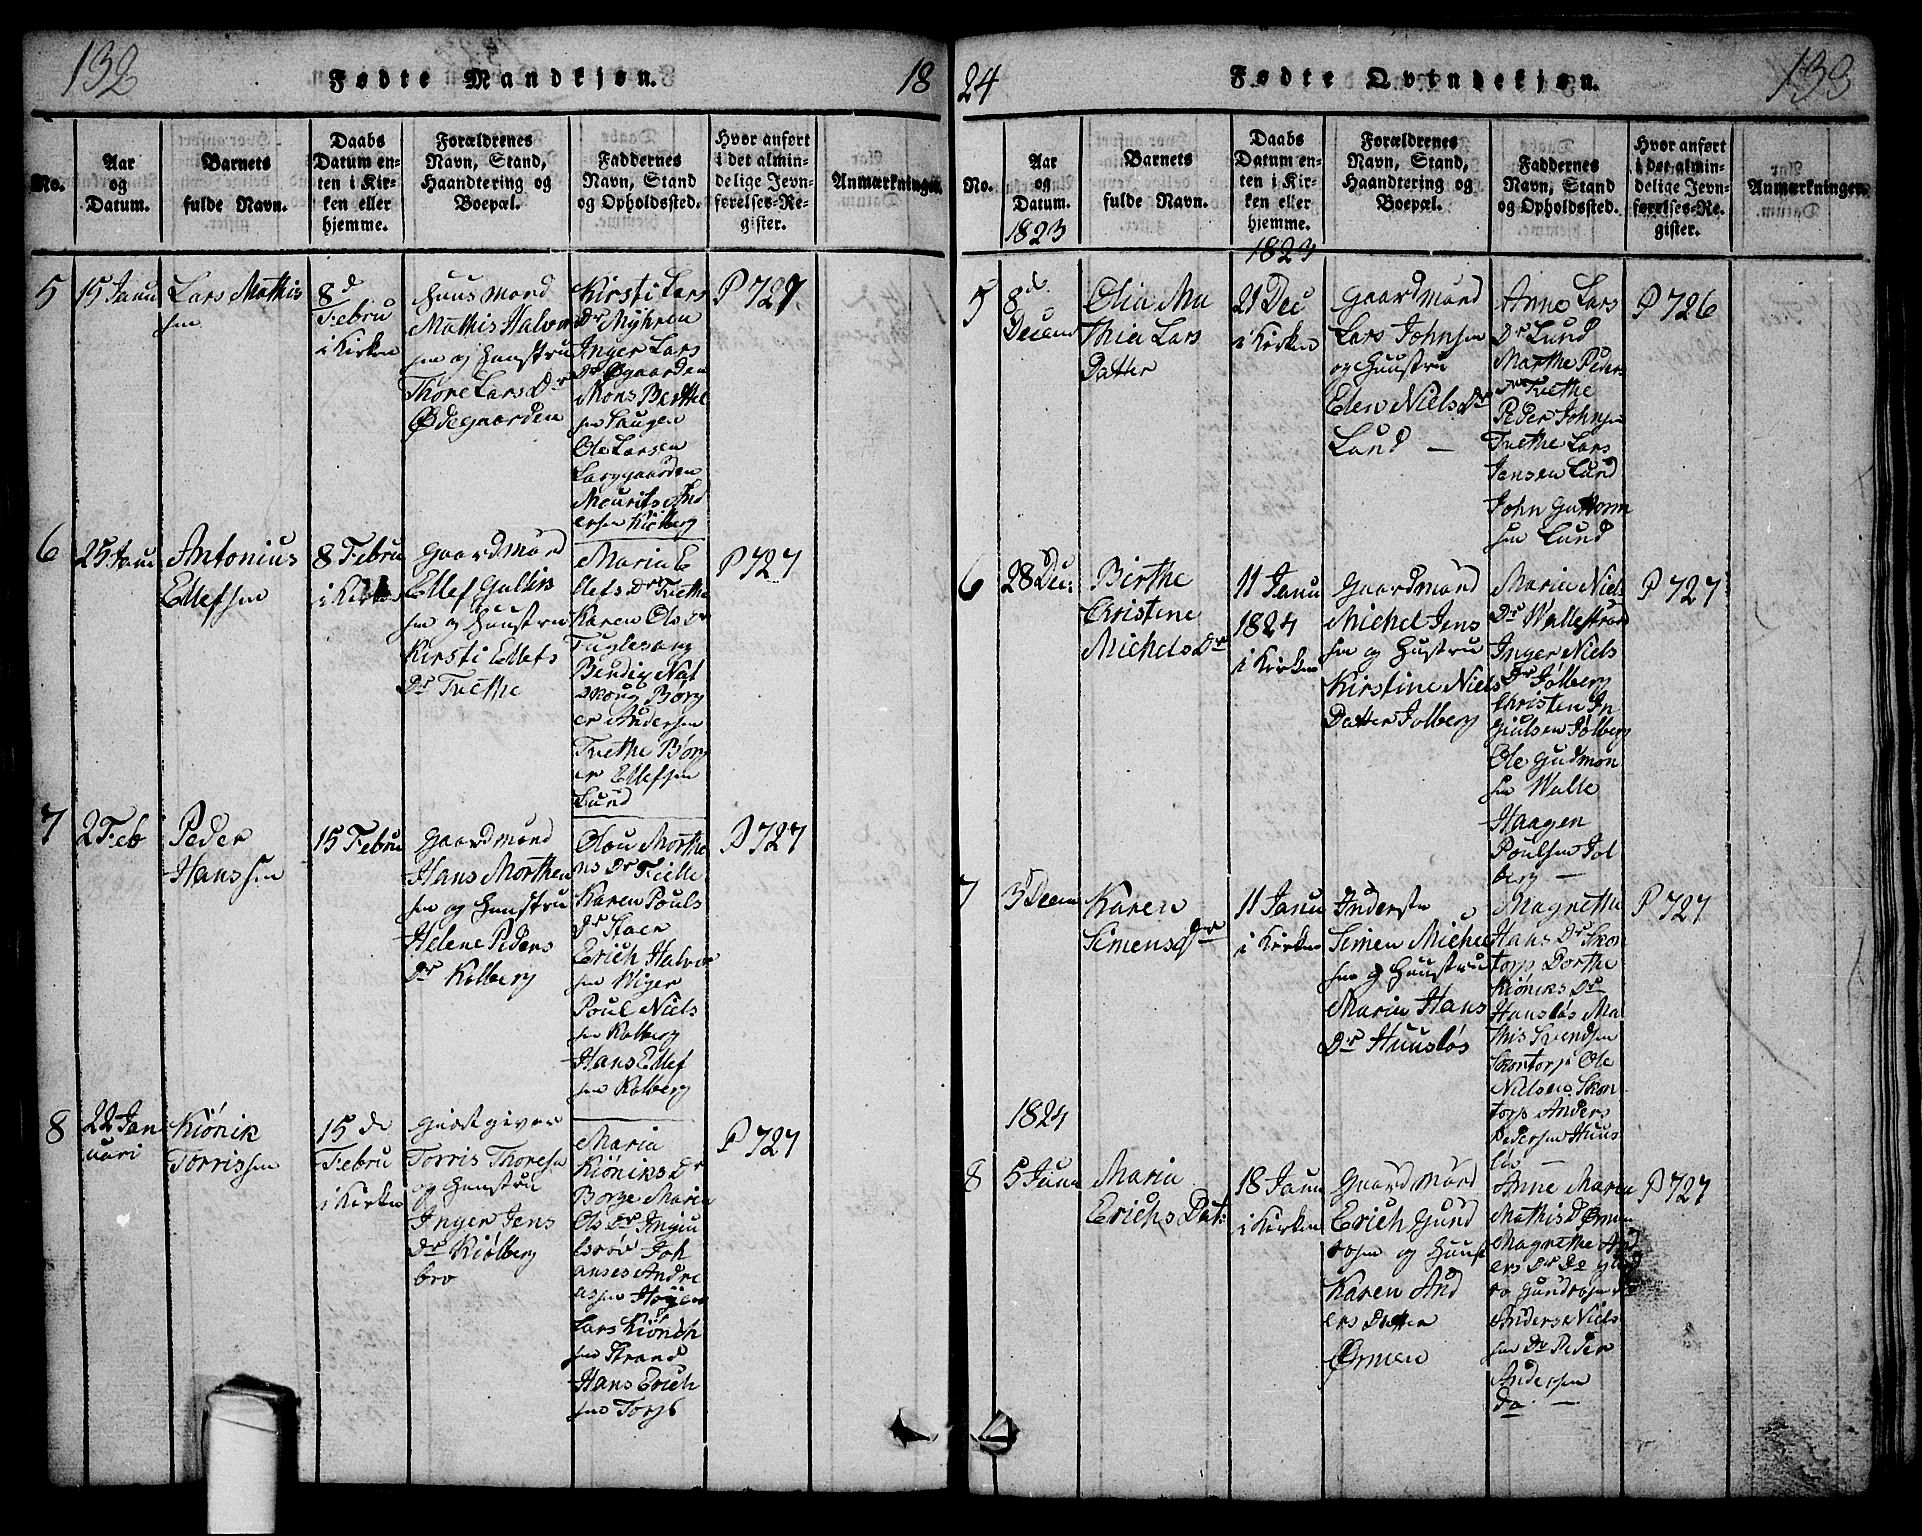 132
Fødte Mandkjøn.
18
No.
Aar
og
Datum.
Barnets
fulde Navn.
Daabs
Datum en-
ten i Kir-
ken eller
hjemme.
Forældrenes
Navn, Stand,
Haandtering og
Boepæl.
Faddernes
Navn, Stand
og Opholdssted.
Hvor anført
i det almin-
delige Jevn-
førelses-Re-
gister.
Anmærkninger.
5
15 Janu
Lars Mathis
sen
8 d
Febru
i Kirken
Huusmand
Mathis Halvor
sen og Huustru
Thore Lars Dr
Ødegaarden
Kirsti Lars
Dr Myhren
Inger Lars
Dr Øgaarden
Mons Berthe
sen Haugen
Ole Larsen
Larygaarden
Mourits And
ersen Kiølberg
P 727
6
25 Janu
Antonius
Ellefsen
8 Febru
i Kirken
Gaardmand
Ellef Gullik
sen og Huustru
Kirsti Ellefs
Dr Tvethe
Maria E
llefs Dr Tvethe
Karen Ols Dr
Fuglesang
Bendix Nal
skoug Børg
er Andersen
Tvethe Børg
er Ellefsen
Lund
P 727
7
2 Feb
Peder
Hanssen
15 Febru
Gaardmand
Hans Morthen
sen og Huustru
Helene Peders
Dr Kolberg
Olou Morthe
ns Dr Fielle
Karen Pouls
Dr Staer
Erich Halvor
sen Wiger
Poul Niels
sen Kolberg
Hans Ellef
sen Kolberg
P 727
8
22 Jan
uari
Kiønik
Torrissen
15 de
Febru
i Kirken
Giestgiver
Torris Thoresen
og Huustru
Inger Jens
Dr Kiølberg
bro
Maria
Kiøniks Dr
Borge Maria
Ols Dr Ingiu
lsrøv Joh
anses Andre
asen Høyen
Lars Kiønich
sen Strand
Hans Erich
sen Torp
P 727
24
Fødte Qvindekjøn.
133
No.
Aar
og
Datum.
1823
Barnets
fulde Navn.
Daabs
Datum en-
ten i Kir-
ken eller
hjemme.
1823
Forældrenes
Navn, Stand,
Haandtering og
Boepæl.
Faddernes
Navn, Stand
og Opholdssted.
Hvor anført
i det almin-
delige Jevn-
førelses-Re-
gister.
Anmærkninger.
5
8 d.
Decem
Olia Ma
thia Lars
Datter
21 Dec
i Kirken
Gaardmand
Lars Johnsen
og Huustru
Elen Niels Dr
Lund —
Anne Lars
Dr Lund
Marthe Peders
Dr Tvethe
Peder Johnsen
Tvethe Lars
Jensen Lund
John Guttorm
sen Lund
P 726
6
28 Dec:
Birthe
Christine
Michels Dr
11 Janu
1824
i Kirken
Gaardmand
Michel Jens
sen og Hustru
Kirstine Niels
Datter Jolberg
Maria Niels
Dr Wallestrad
Inger Niels
Dr Jølberg
Christen In
giulsen Jølberg
Ole Gudmon
sen Walle
Haagen
Poulsen Jol
berg —
P 727
7
3 Decem
Karen
Simensdr
11 Janu
i Kirken
Inderste
Simen Michel
sen og Huustru
Maria Hans
Dr Huusløs
Magrethe
Hans Dr Skon
torp Dorthe
Kiøniks Dr
Hansløs Ma
this Svendsen
Skontorp Ole
Nielsen Skon
torp Anders
Pedersen Huus
løs —
P 727
1824
8
5 Janu
Maria
Erichs Dat:
18 Janu
i Kirken
Gaardmand
Erich Gund
rosen og Huust
Karen And
ers Datter
Ørmen
Anne Maria
Mathis D Ørmen
Magrethe And
ers Dr Do
Gundrosen
Anders Niels
sen Do Peder
Andersen
Do. —
P 727